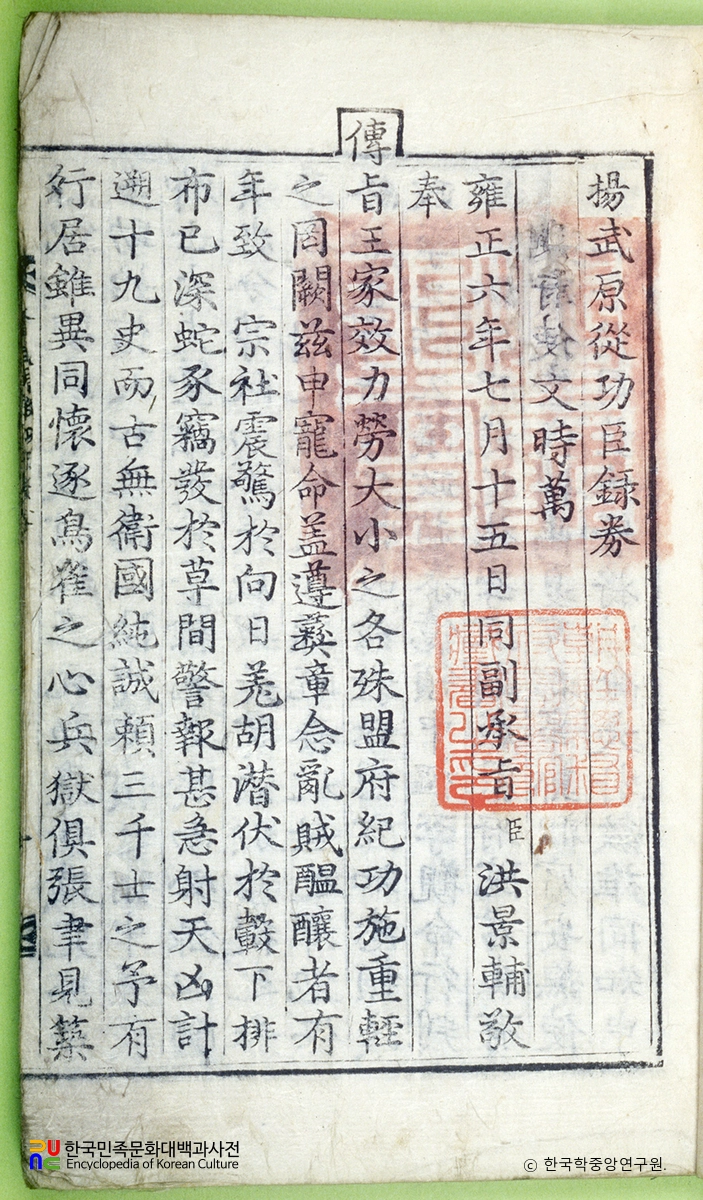 揚武原從功臣録券
文時萬
雍正六年七月十五日同副承旨臣洪景輔敬
奉
傳
旨王家效力勞大小之各殊盟府紀功施重輕
之罔闕茲申寵命盖遵彝章念亂賊醞釀者有
年致宗社震驚於向日羌胡潛伏於轂下排
布已深蛇豕竊發於草間警報甚急射天凶計
遡十九史而古無衛國純誠頼三千士之予有
行居雖異同懷逐鳥雀之心兵獄俱張聿見築
한국민족문화대백과사전
Encyclopedia of Korean Culture
© 한국학중앙연구원.